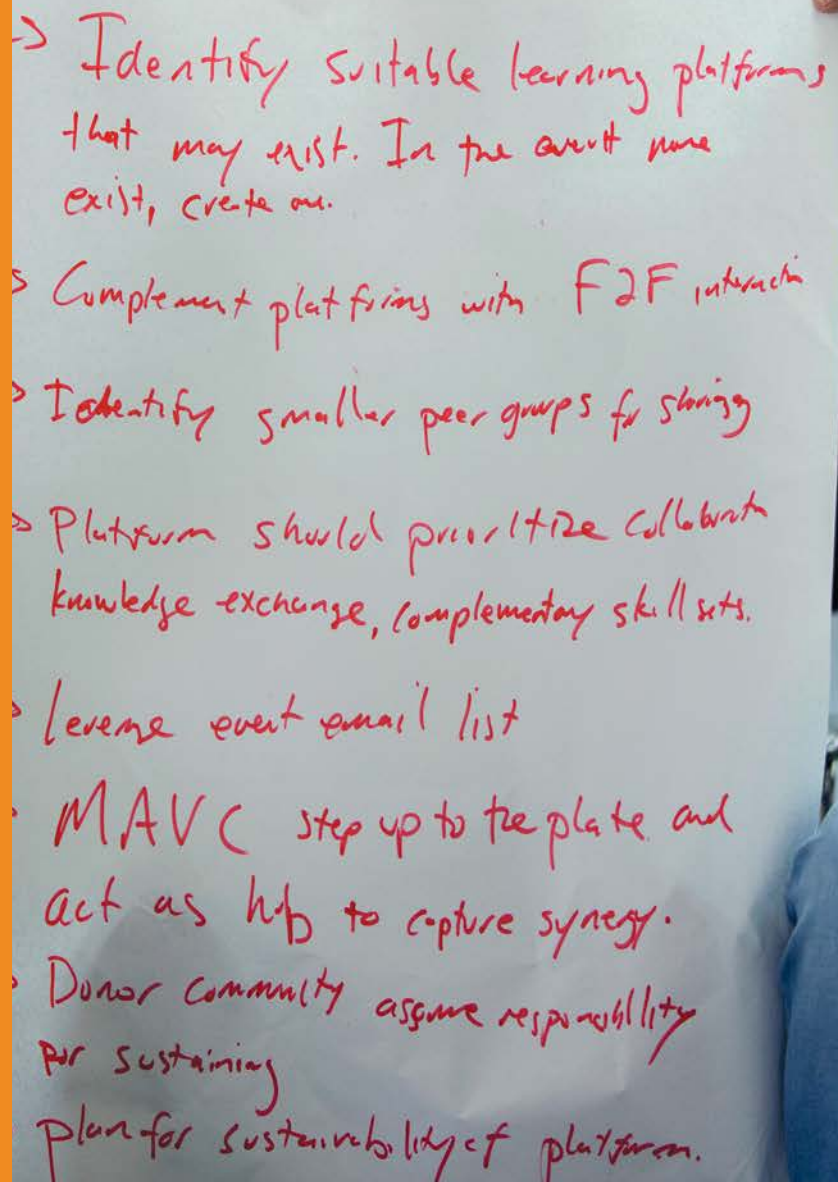 -> Identify suitable learning platforms
that may exist. In the event none
exist, create one.
> Complement platforms with F2F interaction
> Identify smaller peer groups for sharing
> Platform should prioritize collaboration
knowledge exchange, complementary skill sets.
> leverage event email list
> MAVC step up to the plate and
act as hub to capture synergy.
> Donor community assume responsibility
for sustaining
plan for sustainability of platform.